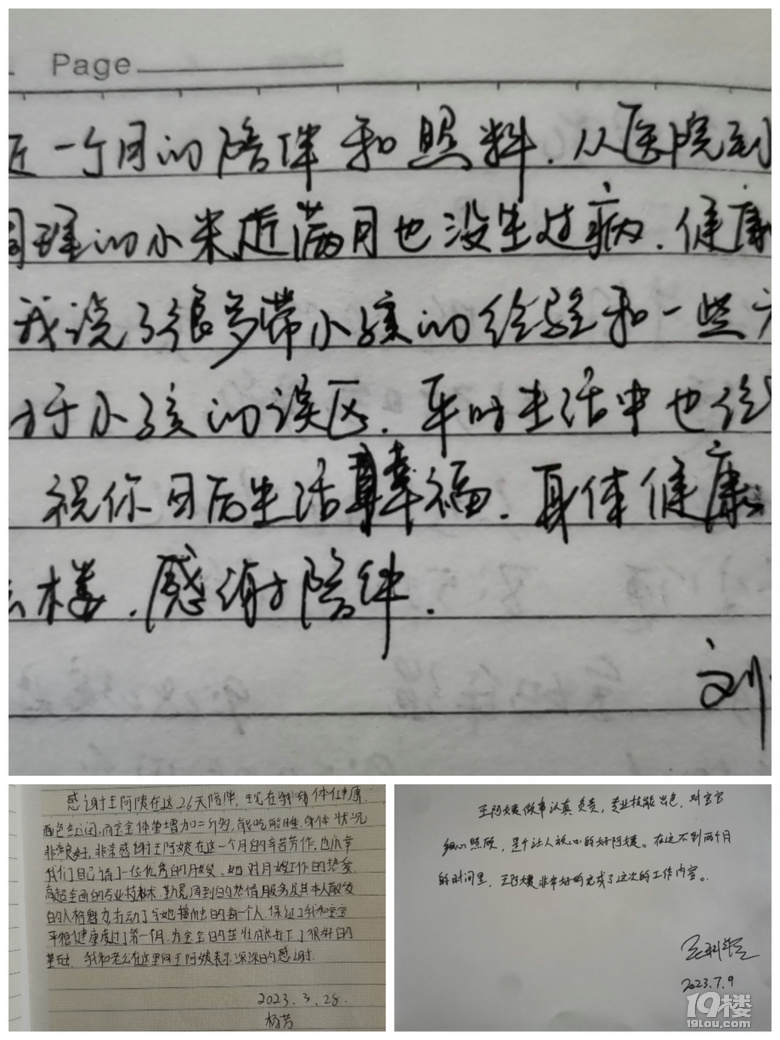 Page
近一个月的陪伴和照料.从医院到
调理的小米近满月也没生过病.健康
我说了很多带小孩的经验和一些
于小孩的误区.平时生活中也给
祝你日后生活幸福.身体健康
楼.感谢陪伴.
刘
感谢王阿姨在这26天陪伴,现在我身体健康,
面色红润,而宝宝体重增加二斤多,能吃能睡,身体状况
非常良好,非常感谢王阿姨在这一个月的辛苦劳作,也庆幸
我们自己请了一位优秀的月嫂,她对月嫂工作的热爱
高超全面的专业技术勤恳周到的热情服务及其本人
的人格魅力打动了与她接触的每一个人,保证了我和宝宝
平稳健康度过了第一个月,为宝宝的茁壮成长打下了很好的
基础,我和老公在这里向王阿姨表示深深的感谢.
2023.3.28.
杨芳
王阿姨做事认真负责,专业技能出色,对宝宝
细心照顾,是个让人放心的好阿姨。在这不到两个月
的时间里,王阿姨非常好的完成了这次的工作内容。
2023.7.9
19楼
19lou.com